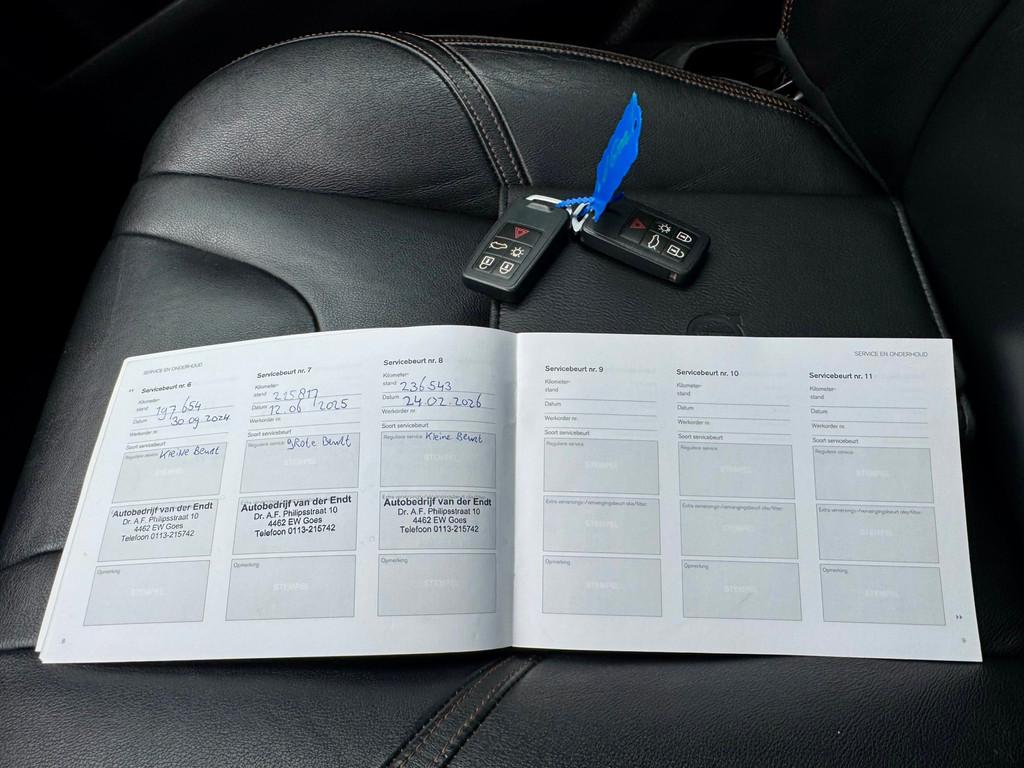 SERVICE EN ONDERHOUD
Servicebeurt nr. 6
Kilometer-
stand 197 654
Datum 30.09.2024
Werkorder nr.
Soort servicebeurt
Reguliere service Kleine Beurt
Autobedrijf van der Endt
Dr. A.F. Philipsstraat 10
4462 EW Goes
Telefoon 0113-215742
Opmerking
STEMPEL
8
Servicebeurt nr. 7
Kilometer-
stand 215817
Datum 12.06 2025
Werkorder nr.
Soort servicebeurt
Reguliere service grote Beurt
STEMPEL
Autobedrijf van der Endt
Dr. A.F. Philipsstraat 10
4462 EW Goes
Telefoon 0113-215742
Opmerking
STEMPEL
Servicebeurt nr. 8
Kilometer-
stand 236543
Datum 24.02.2026
Werkorder nr.
Soort servicebeurt
Reguliere service Kleine Beurt
STEMPEL
Autobedrijf van der Endt
Dr. A.F. Philipsstraat 10
4462 EW Goes
Telefoon 0113-215742
Opmerking
STEMPEL
SERVICE EN ONDERHOUD
Servicebeurt nr. 9
Kilometer-
stand
Datum
Werkorder nr.
Soort servicebeurt
Reguliere service
STEMPEL
Extra verversings-/vervangingsbeurt olie/filter
STEMPEL
Opmerking
STEMPEL
Servicebeurt nr. 10
Kilometer-
stand
Datum
Werkorder nr.
Soort servicebeurt
Reguliere service
STEMPEL
Extra verversings-/vervangingsbeurt olie/filter
STEMPEL
Opmerking
STEMPEL
Servicebeurt nr. 11
Kilometer-
stand
Datum
Werkorder nr.
Soort servicebeurt
Reguliere service
STEMPEL
Extra verversings-/vervangingsbeurt olie/filter
STEMPEL
Opmerking
STEMPEL
9